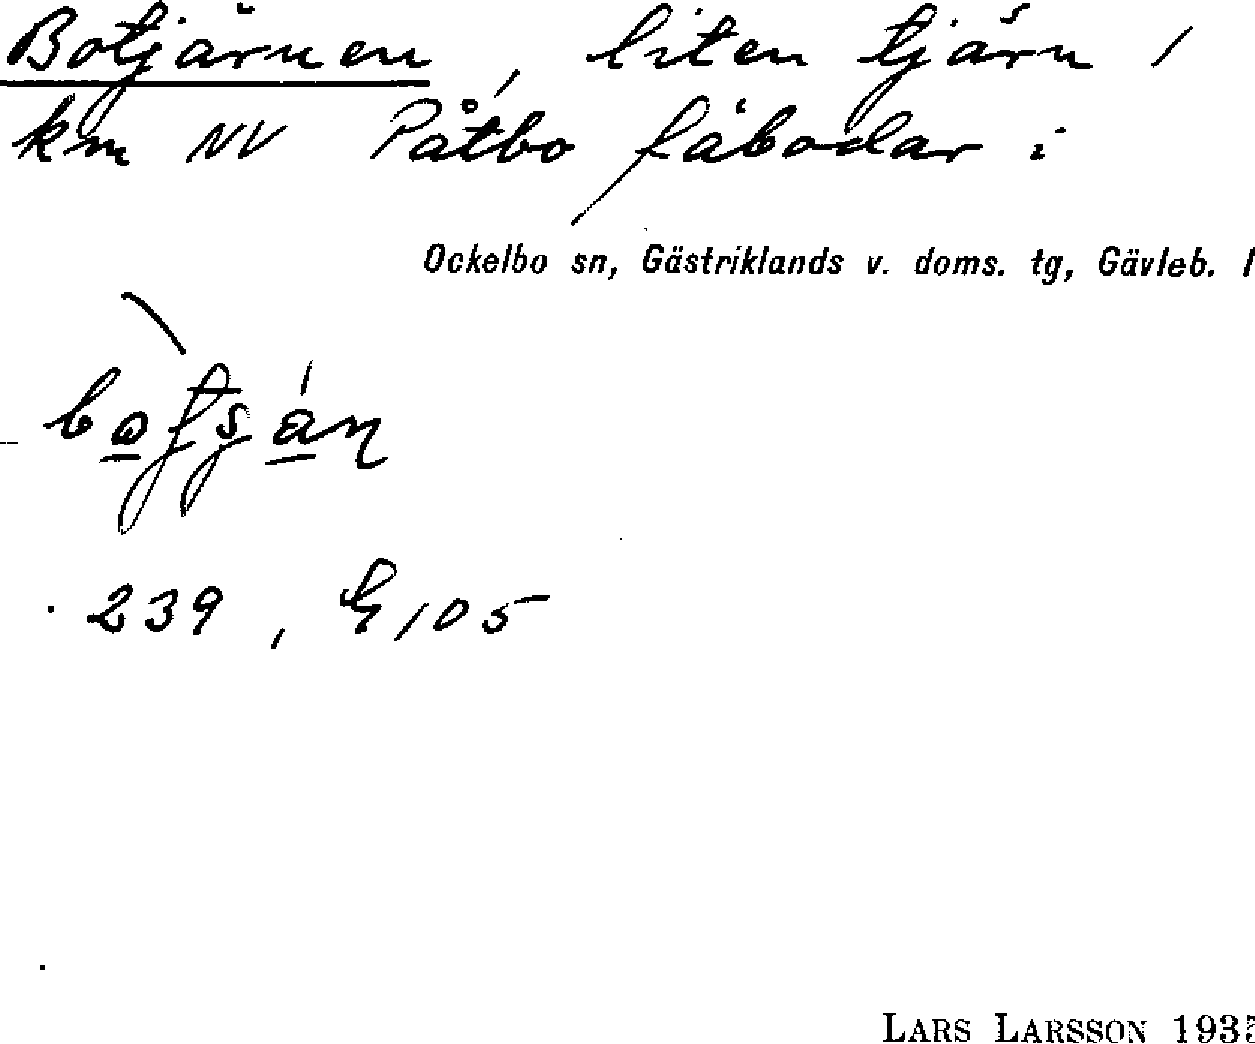 Botjärnen, liten tjärn 1
km NV Påtbo fäbodar i
Ockelbo sn, Gästriklands v. doms. tg, Gävleb. l
239, G105
LARS LARSSON 193